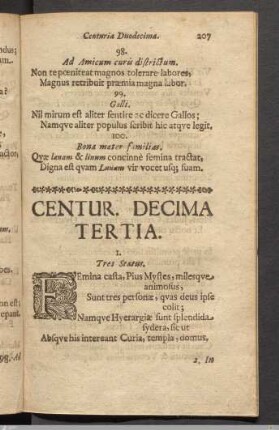 Centuria Duodecima. 207
98.
Ad Amicum curis districtum.
Non te pœniteat magnos tolerare labores,
Magnus retribuit præmia magna labor.
99.
Galli.
Nil mirum est aliter sentire ac dicere Gallos;
Namqve aliter populus scribit hic atqve legit.
100.
Bona mater familias.
Qvæ lanam & linum concinnè femina tractat,
Digna est qvam Lunam vir vocet usq; suam.
CENTUR. DECIMA
TERTIA.
1.
Tres Status.
FEmina casta, Pius Mystes, milesqve
animosus,
Sunt tres personæ, qvas deus ipse
colit;
Namqve Hyerargiæ sunt splendida
sydera, sicut
Absqve his intereunt Curia, templa, domus.
2. In